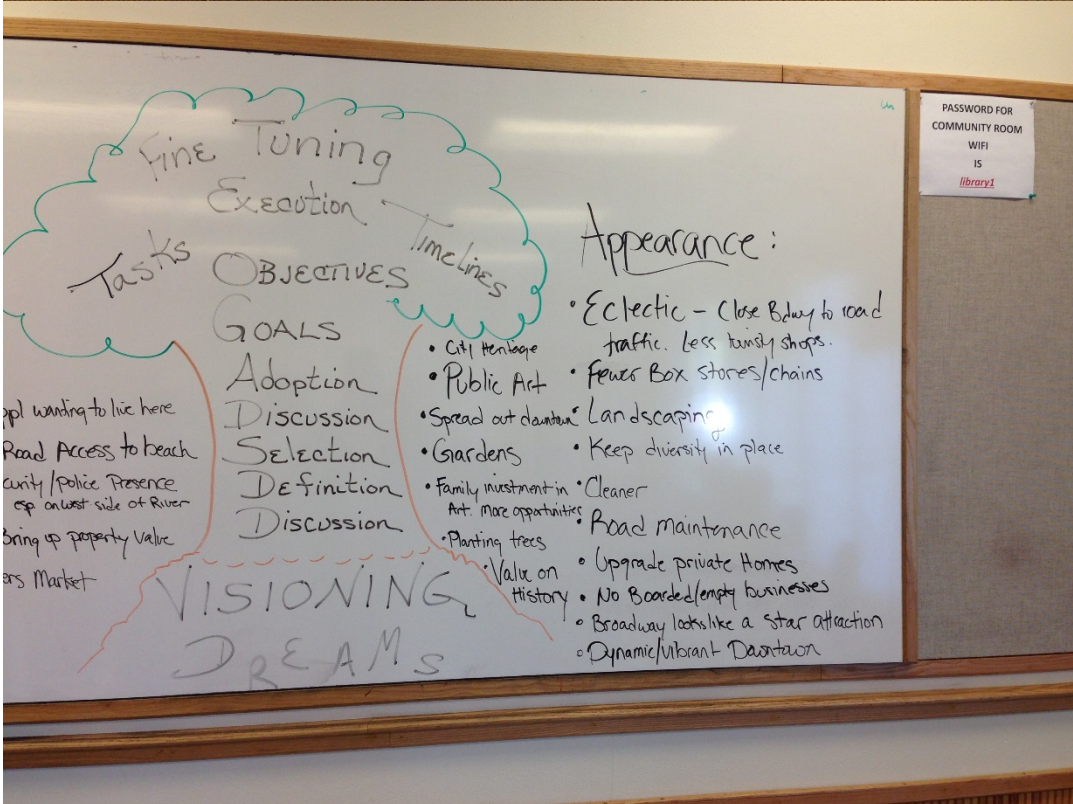 Fine Tuning
Execution
Tasks
Timelines
Objectives
Goals
Adoption
Discussion
Selection
Definition
Discussion
VISIONING
DREAMS
ppl wanting to live here
Road Access to beach
curity/police Presence
esp on west side of River
Bring up property value
ers Market
• City Heritage
• Public Art
• Spread out downtown
• Gardens
• Family investment in
Art. More opportunities
• Planting trees
• Value on
History
Appearance:
• Eclectic – Close Bdwy to road
traffic. Less touristy shops.
• Fewer Box stores/chains
• Landscaping
• Keep diversity in place
• Cleaner
• Road maintenance
• Upgrade private Homes
• No Boarded/empty businesses
• Broadway looks like a star attraction
• Dynamic/vibrant Downtown
PASSWORD FOR
COMMUNITY ROOM
WIFI
IS
library1